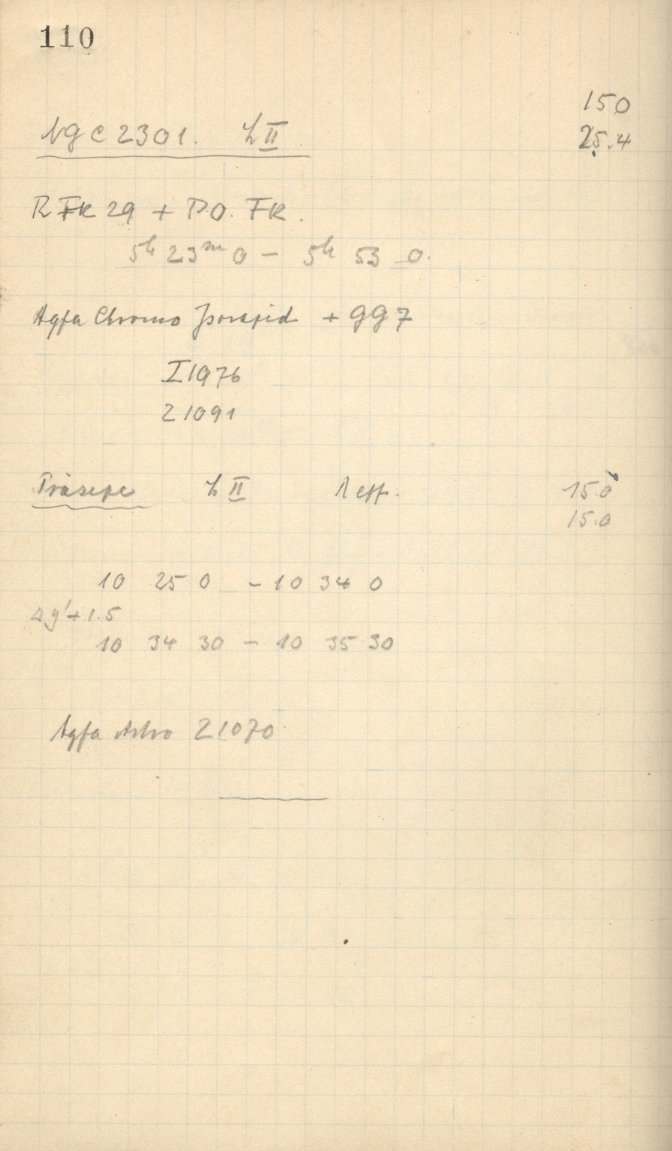 110
150
NgC 2301. h II 25.4
R FK 29 + P.O. FK.
5h 23m 0 - 5h 53 0.
Agfa Chromo Isorapid + GG7
I 1976
21091
Präsepe h II 15.0
15.0
10 25 0 - 10 34 0
Δy' + 1.5
10 34 30 - 10 35 30
Agfa Astro 21070